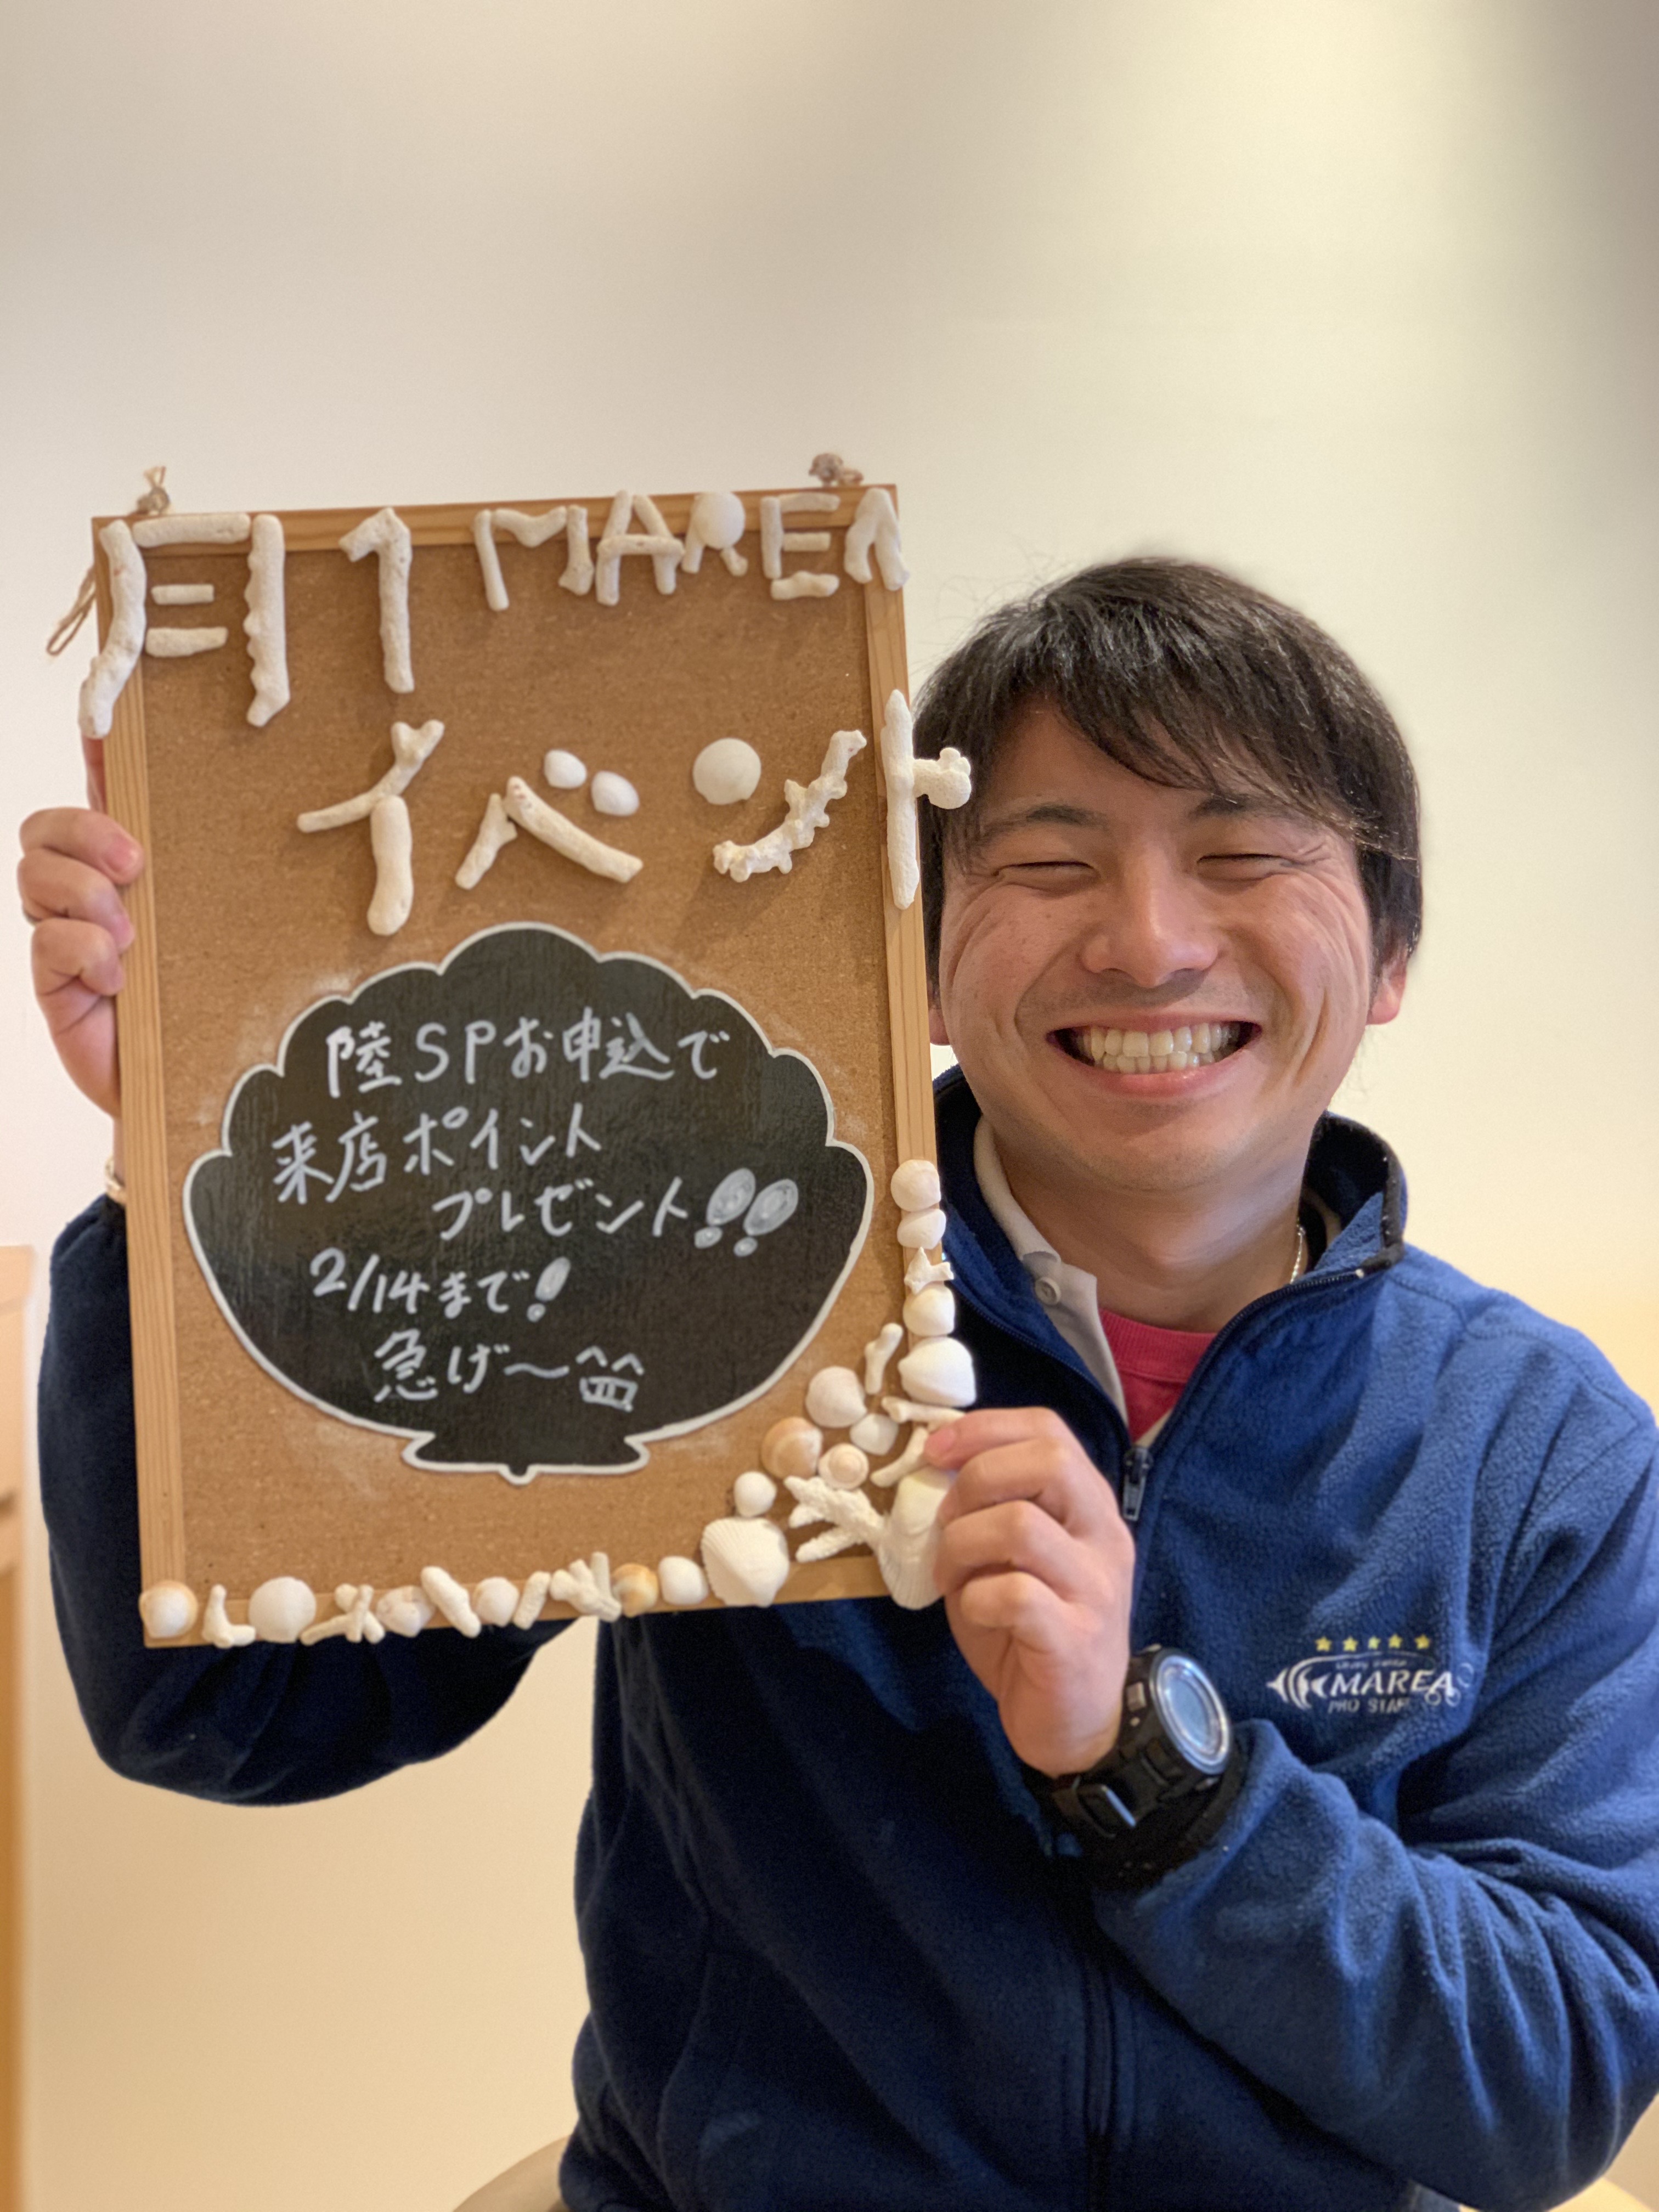 月1 MAREA
イベント
陸SPお申込で
来店ポイント
プレゼント!!
2/14まで!
急げ〜
MAREA
PRO STAFF